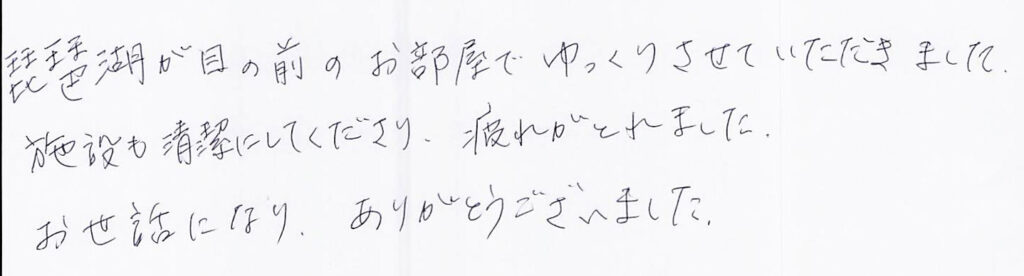 琵琶湖が目の前のお部屋でゆっくりさせていただきました.
施設も清潔にしてくださり、疲れがとれました.
お世話になり、ありがとうございました.